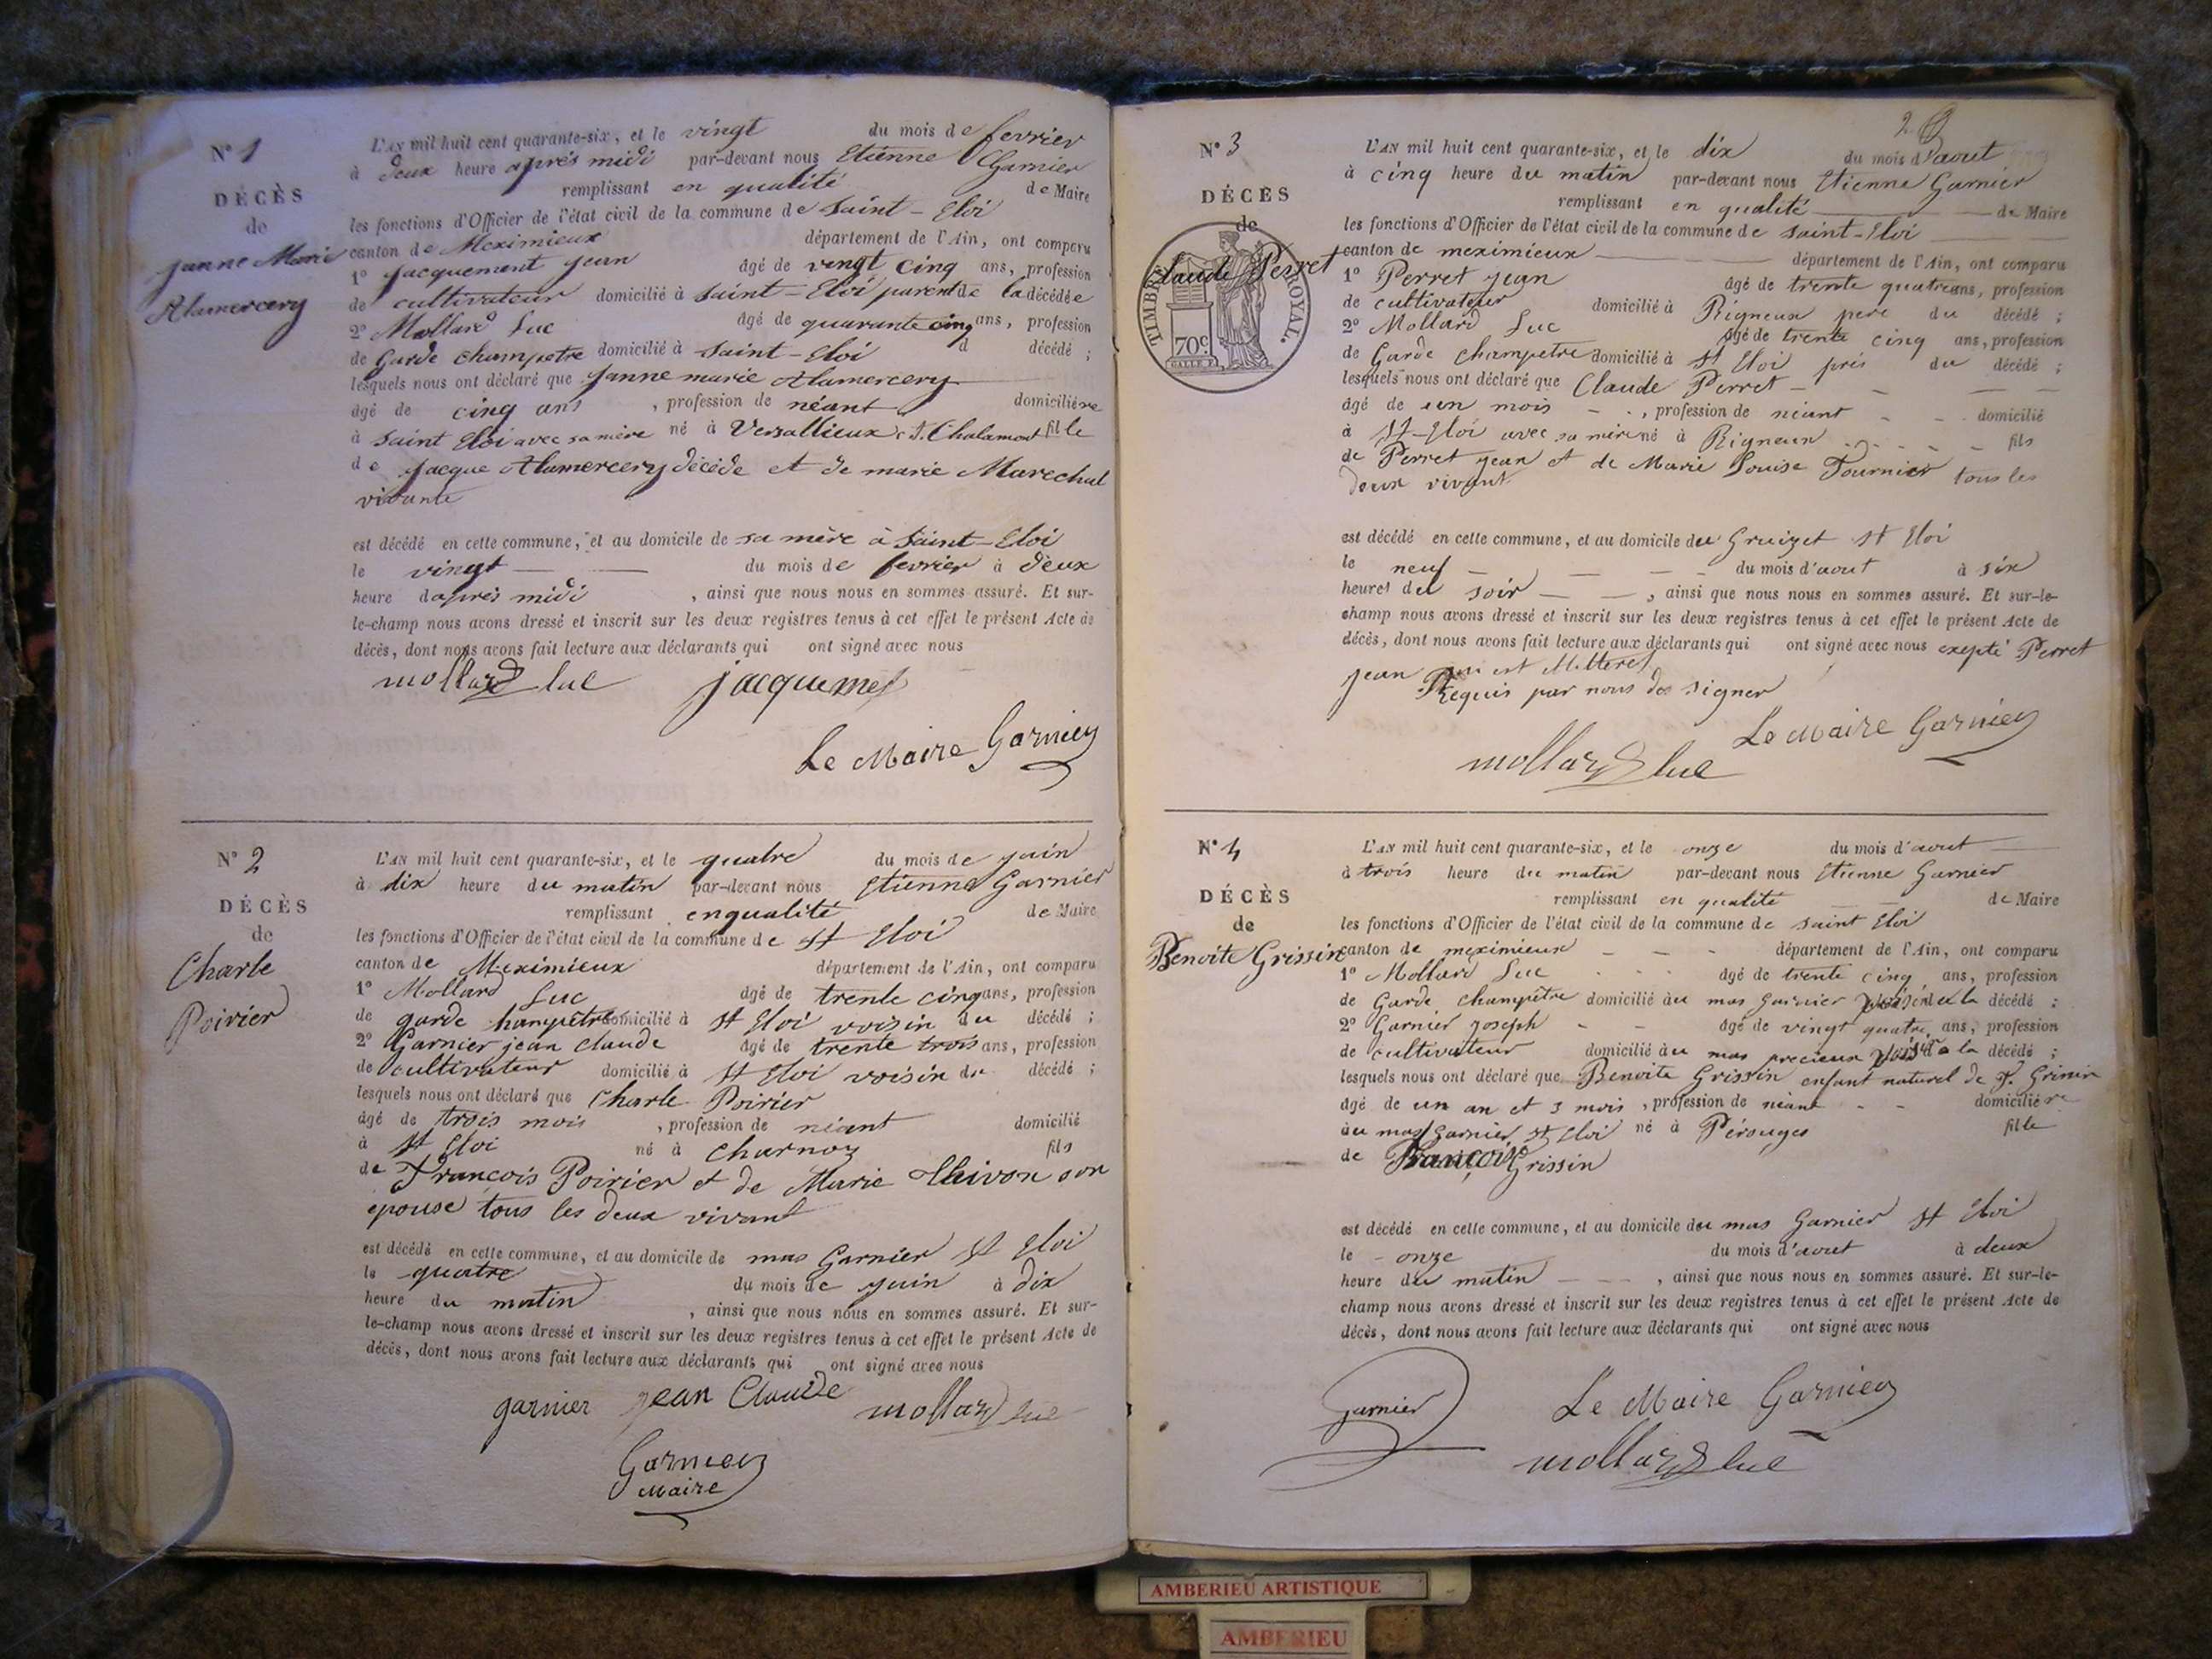 N° 1
DÉCÈS
de
Janne Marie
Alamercery
L'AN mil huit cent quarante-six, et le vingt du mois de fevrier
à deux heure après midi par-devant nous Etienne Garnier
remplissant en qualité de Maire
les fonctions d'Officier de l'état civil de la commune de Saint-Eloi
canton de Meximieux département de l'Ain, ont comparu
1° Jacquement Jean âgé de vingt cinq ans, profession
de cultivateur domicilié à Saint-Eloi parent de la décédée
2° Mollard Luc âgé de quarante cinq ans, profession
de Garde champetre domicilié à Saint-Eloi d décédé ;
lesquels nous ont déclaré que Janne marie Alamercery
âgé de cinq ans, profession de néant domiciliére
à Saint Eloi avec sa mère né à Versallieux Ct. Chalamont fille
de Jacque Alamercery décéde et de marie Marechal
vivante
est décédé en cette commune, et au domicile de sa mère à Saint-Eloi
le vingt du mois de fevrier à deux
heure d'après midi, ainsi que nous nous en sommes assuré. Et sur-
le-champ nous avons dressé et inscrit sur les deux registres tenus à cet effet le présent Acte de
décès, dont nous avons fait lecture aux déclarants qui ont signé avec nous
mollard luc jacquemet
Le Maire Garnier
N° 2
DÉCÈS
de
Charle
Poirier
L'AN mil huit cent quarante-six, et le quatre du mois de juin
à dix heure du matin par-devant nous Etienne Garnier
remplissant en qualité de Maire
les fonctions d'Officier de l'état civil de la commune de St Eloi
canton de Meximieux département de l'Ain, ont comparu
1° Mollard Luc âgé de trente cinq ans, profession
de garde hampêtre domicilié à St Eloi voisin du décédé ;
2° Garnier jean claude âgé de trente trois ans, profession
de cultivateur domicilié à St Eloi voisin du décédé ;
lesquels nous ont déclaré que Charle Poirier
âgé de trois mois, profession de néant domicilié
à St Eloi né à Charnoz fils
de François Poirier et de Marie Thivon son
epouse tous les deux vivant
est décédé en cette commune, et au domicile de mas Garnier St Eloi
le quatre du mois de juin à dix
heure du matin, ainsi que nous nous en sommes assuré. Et sur-
le-champ nous avons dressé et inscrit sur les deux registres tenus à cet effet le présent Acte de
décès, dont nous avons fait lecture aux déclarants qui ont signé avec nous
garnier jean Claude mollard luc
Garnier
Maire
2
N° 3
DÉCÈS
de
Claude Perret
TIMBRE ROYAL.
70c
L'AN mil huit cent quarante-six, et le dix du mois d'aout
à cinq heure du matin par-devant nous Etienne Garnier
remplissant en qualité de Maire
les fonctions d'Officier de l'état civil de la commune de Saint-Eloi
canton de meximieux département de l'Ain, ont comparu
1° Perret Jean âgé de trente quatre ans, profession
de cultivateur domicilié à Rigneux pere du décédé ;
2° Mollard Luc âgé de trente cinq ans, profession
de Garde champetre domicilié à St Eloi près du décédé ;
lesquels nous ont déclaré que Claude Perret
âgé de un mois, profession de néant domicilié
à St-Eloi avec sa mère né à Rigneux fils
de Perret Jean et de Marie Louise Tournier tous les
deux vivant
est décédé en cette commune, et au domicile du Gruizet St Eloi
le neuf du mois d'aout à six
heures du soir, ainsi que nous nous en sommes assuré. Et sur-le-
champ nous avons dressé et inscrit sur les deux registres tenus à cet effet le présent Acte de
décès, dont nous avons fait lecture aux déclarants qui ont signé avec nous exepté Perret
Jean qui est illiteret
Requis par nous de signer
Le Maire Garnier
mollard luc
N° 4
DÉCÈS
de
Benoite Grissin
L'AN mil huit cent quarante-six, et le onze du mois d'aout
à trois heure du matin par-devant nous Etienne Garnier
remplissant en qualité de Maire
les fonctions d'Officier de l'état civil de la commune de Saint Eloi
canton de meximieux département de l'Ain, ont comparu
1° Mollard Luc âgé de trente cinq ans, profession
de Garde champêtre domicilié au mas garnier de la décédé ;
2° Garnier Joseph âgé de vingt quatre ans, profession
de cultivateur domicilié au mas precieux la décédé ;
lesquels nous ont déclaré que Benoite Grissin enfant naturel de f. Grissin
âgé de un an et 3 mois, profession de néant domicilière
au mas Garnier St Eloi né à Pérouges fille
de François Grissin
est décédé en cette commune, et au domicile du mas Garnier St Eloi
le onze du mois d'aout à deux
heure du matin, ainsi que nous nous en sommes assuré. Et sur-le-
champ nous avons dressé et inscrit sur les deux registres tenus à cet effet le présent Acte de
décès, dont nous avons fait lecture aux déclarants qui ont signé avec nous
Garnier Le Maire Garnier
mollard luc
AMBERIEU ARTISTIQUE
AMBERIEU